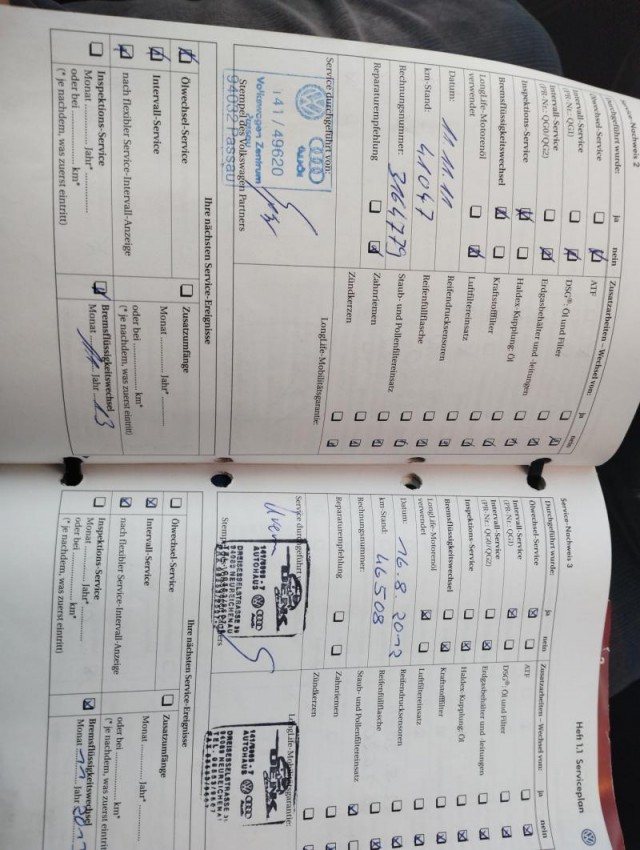 Service-Nachweis 2
Durchgeführt wurde: ja nein
Ölwechsel-Service
Intervall-Service
(PR-Nr.: QG1)
Intervall-Service
(PR-Nr.: QG0/QG2)
Inspektions-Service
Bremsflüssigkeitswechsel
LongLife-Motorenöl
verwendet
Datum: 11.11.11
km-Stand: 41047
Rechnungsnummer: 3164779
Reparaturempfehlung
Service durchgeführt von:
141/49620
Volkswagen Zentrum
Passau
94032 Passau
Stempel des Volkswagen Partners
Zusatzarbeiten – Wechsel von: ja nein
ATF
DSG®: Öl und Filter
Erdgasbehälter und -leitungen
Haldex-Kupplung: Öl
Kraftstofffilter
Luftfiltereinsatz
Reifendrucksensoren
Reifenfüllflasche
Staub- und Pollenfiltereinsatz
Zahnriemen
Zündkerzen
LongLife-Mobilitätsgarantie:
Ihre nächsten Service-Ereignisse
Ölwechsel-Service
Intervall-Service
nach flexibler Service-Intervall-Anzeige
Inspektions-Service
Monat Jahr*
oder bei km*
(* je nachdem, was zuerst eintritt)
Zusatzumfänge
Monat Jahr*
oder bei km*
(* je nachdem, was zuerst eintritt)
Bremsflüssigkeitswechsel
Monat 11 Jahr 13
Heft 1.1 Serviceplan
Service-Nachweis 3
Durchgeführt wurde: ja nein
Ölwechsel-Service
Intervall-Service
(PR-Nr.: QG1)
Intervall-Service
(PR-Nr.: QG0/QG2)
Inspektions-Service
Bremsflüssigkeitswechsel
LongLife-Motorenöl
verwendet
Datum: 16.8.2012
km-Stand: 46508
Rechnungsnummer:
Reparaturempfehlung
Service durchgeführt
AUTOHAUS
DREISESSELSTRASSE
NEUREICHENAU
Zusatzarbeiten – Wechsel von: ja nein
ATF
DSG®: Öl und Filter
Erdgasbehälter und -leitungen
Haldex-Kupplung: Öl
Kraftstofffilter
Luftfiltereinsatz
Reifendrucksensoren
Reifenfüllflasche
Staub- und Pollenfiltereinsatz
Zahnriemen
Zündkerzen
AUTOHAUS
DREISESSELSTRASSE
Ihre nächsten Service-Ereignisse
Ölwechsel-Service
Intervall-Service
nach flexibler Service-Intervall-Anzeige
Inspektions-Service
Monat Jahr*
oder bei km*
(* je nachdem, was zuerst eintritt)
Zusatzumfänge
Monat Jahr*
oder bei km*
(* je nachdem, was zuerst eintritt)
Bremsflüssigkeitswechsel
Monat 11 Jahr